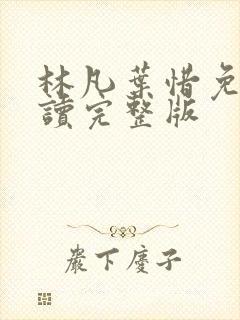 林凡葉惜免
讀完整版
嚴下慶子